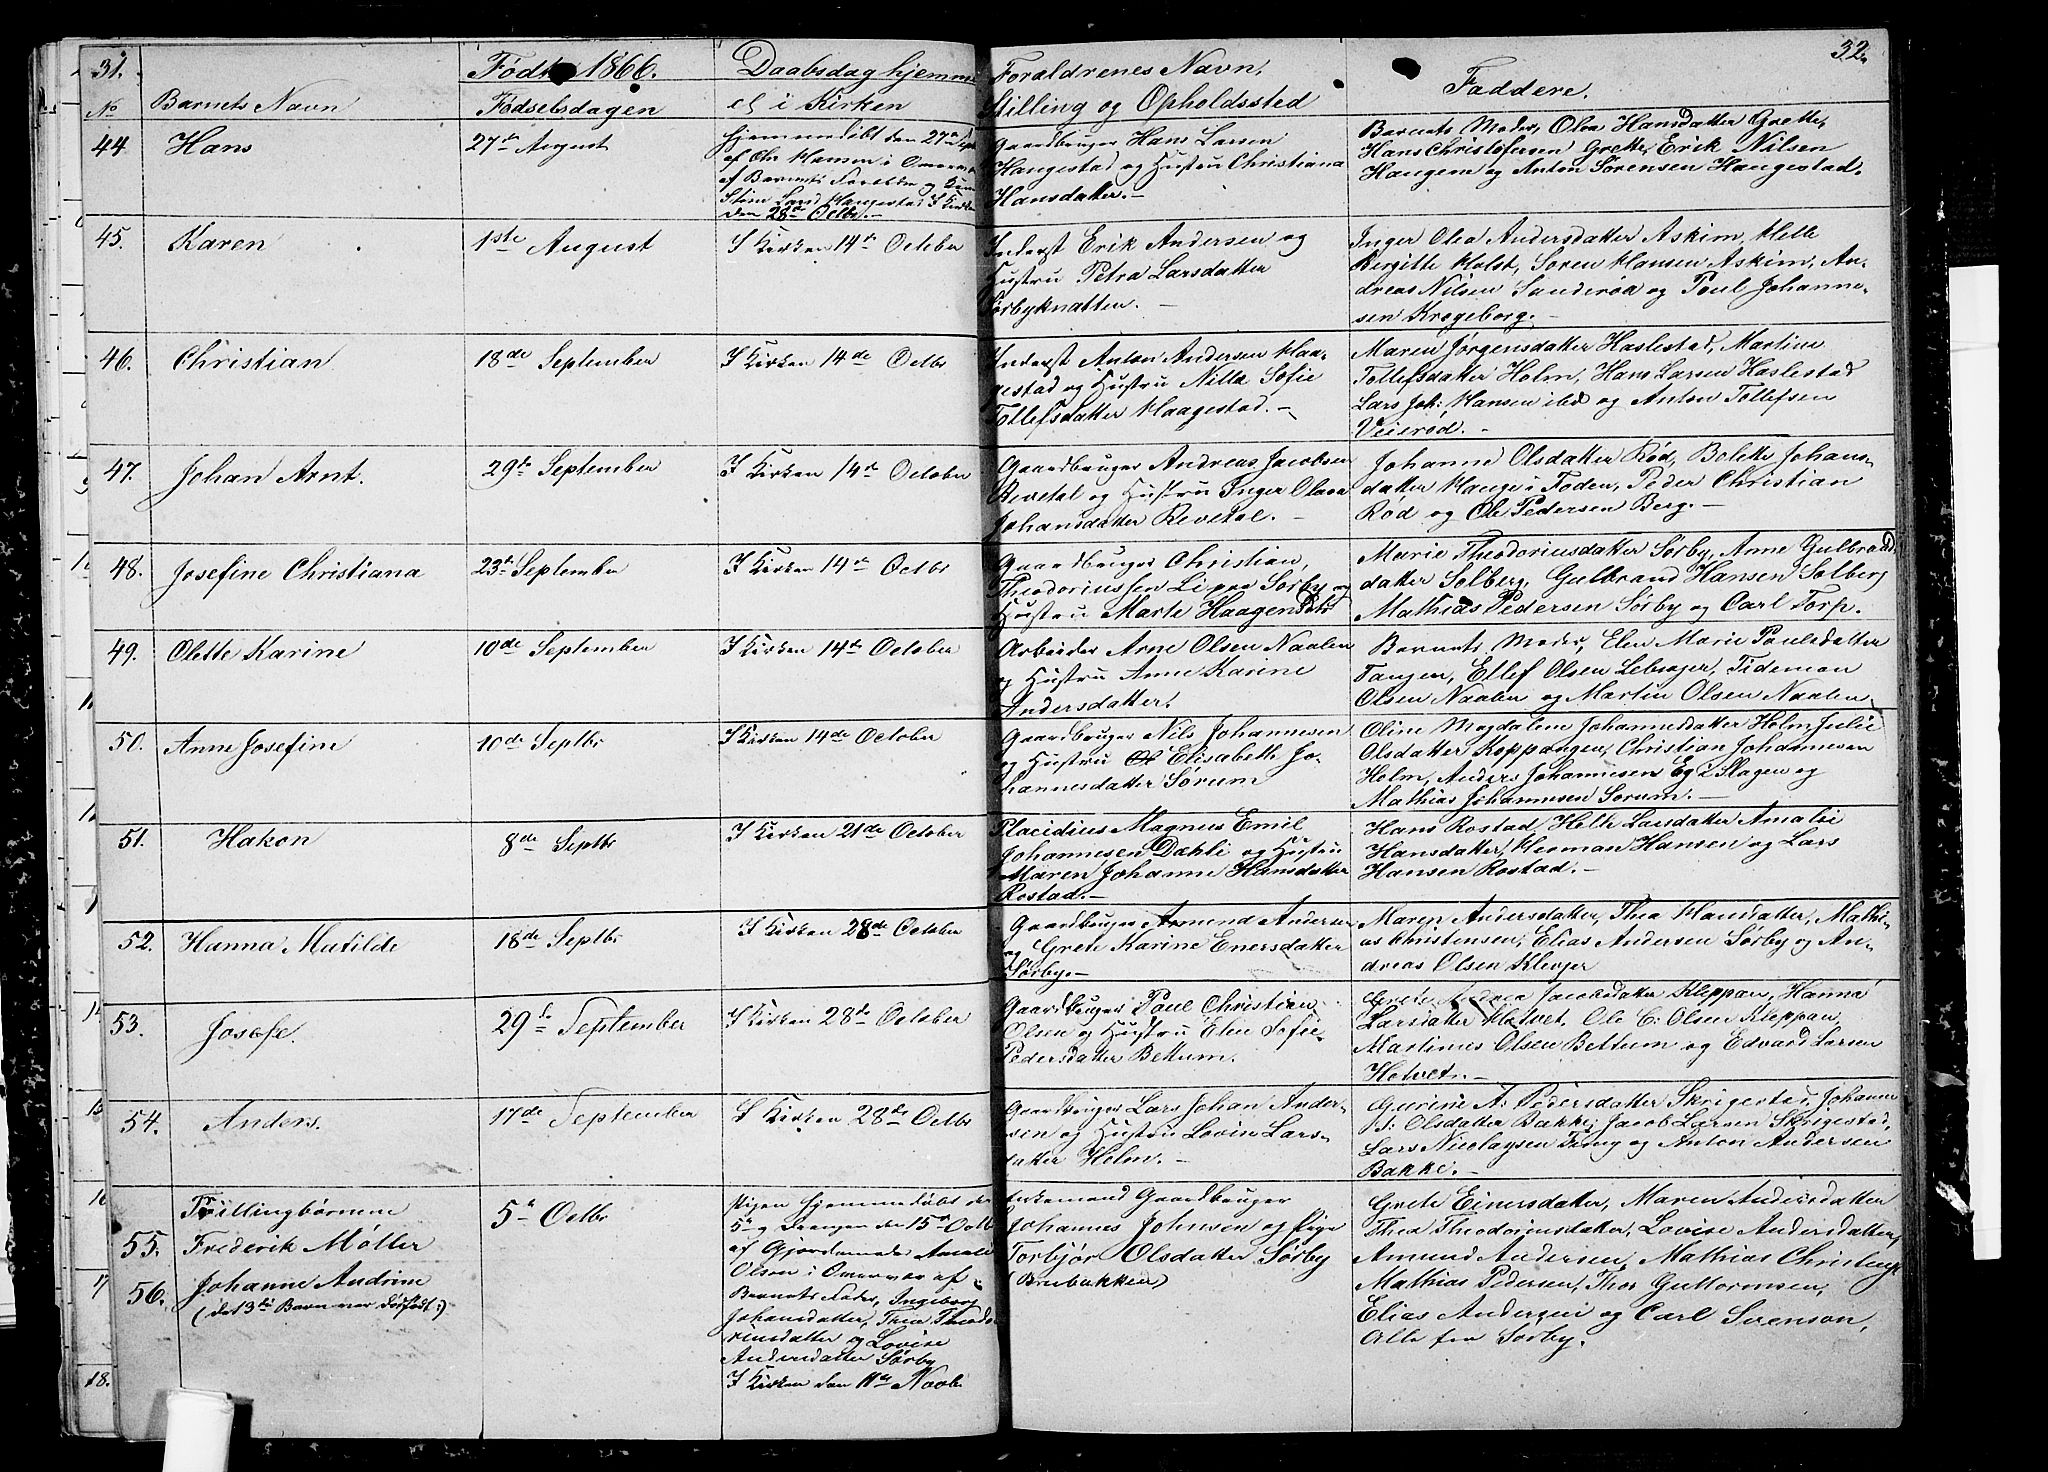 31.
Født 1866.
Daabsdag hjemme
Foraldrenes Navn,
Faddere.
32.
No Barnets Navn
Fødselsdagen
el i Kirken
Stilling og Opholdssted
44 Hans
27de August
Hjemmedøbt den 27de
af Chr Hansen i
af Barnets Forældre og
Lars Haugestad I Kirken
den 28de Octbr. -
Gaardbruger Hans Larsen
Haugestad og Hustru Christiana
Hansdatter. -
Barnets Moder, Olea Hansdatter Grette,
Hans Christofersen Grette, Erik Nilsen
Haugene og Anton Sørensen Haugestad.
45. Karen
1ste August
I Kirken 14de October
Inderst Erik Andersen og
Hustru Petra Larsdatter
Sørbyknatten. -
Inger Olea Andersdatter Askim, Helle
Birgitte Holst, Søren Hansen Askim, An-
dreas Nilsen Sanderød og Poul Johanne-
sen Krogeborg. -
46. Christian
18de September
I Kirken 14de Octbr
Inderst Anton Andersen Haa-
gestad og Hustru Nilla Sofie
Tollefsdatter Haagestad. -
Maren Jørgensdatter Haslestad, Martine
Tollefsdatter Holm, Hans Larsen Haslestad
Lars Joh: Hansen ibd og Anton Tollefsen
Veierød. -
47. Johan Arnt.
29de September
I Kirken 14de October
Gaardbruger Andreas Jacobsen
Revetal og Hustru Inger Olava
Johansdatter Revetal. -
Johanne Olsdatter Rød, Bolette Johans-
datter Hauge i Foden, Peder Christian
Rød og Ole Pedersen Berg. -
48. Josefine Christiana
23de September
I Kirken 14de Octbr
Gaardbruger Christian,
Theodoriussen Lippe Sørby og
Hustru Marte Haagensdtr
Marie Theodoriusdatter Sørby, Anne Gulbrand
datter Solberg, Gulbrand Hansen Solberg
Mathias Pedersen Sørby og Carl Torp.
49. Olette Karine
10de September
I Kirken 14de October
Arbeider Arne Olsen Naalen
og Hustru Anne Karine
Andersdatter.
Barnets Moder, Elen Marie Paulsdatter
Tangen, Ellef Olsen Lebsøjer, Tideman
Olsen Naalen og Martin Olsen Naalen
50. Anne Josefine
10de Septbr
I Kirken 14de October
Gaardbruger Nils Johannesen
og Hustru Elisabeth Jo-
hannesdatter Sørum
Oline Magdalene Johannesdatter Holm, Julie
Olsdatter Koppangen, Christian Johannesen
Holm, Anders Johannesen Eg i Slagen og
Mathias Johannesen Sørum. -
51. Hakon
8de Septbr
I Kirken 21de October
Placidius Magnus Emil
Johannesen Dæhli og Hustru
Maren Johanne Hansdatter
Rostad. -
Hans Rostad, Helle Larsdatter Amalie
Hansdatter, Herman Hansen og Lars
Hansen Rostad. -
52. Hanna Matilde
18de Septbr
I Kirken 28de October
Gaardbruger Amund Andersen
og Grete Karine Enersdatter
Sørby. -
Maren Andersdatter, Thea Hansdatter, Mathi-
as Christensen, Elias Andersen Sørby og An-
dreas Olsen Klevjer
53. Josefe.
29de September
I Kirken 28de October
Gaardbruger Paul Christian
Olsen og Hustru Elen Sofie
Pedersdatter Bettum.
Grete Andrea Jacobsdatter Kleppan, Hanna
Larsdatter Hotvet, Ole C: Olsen Kleppan,
Martinus Olsen Bettum og Edvard Larsen
Hotvet. -
54. Anders.
17de September
I Kirken 28de Octbr
Gaardbruger Lars Johan Ander-
sen og Hustru Lovise Lars-
datter Holm. -
Gurine A: Pedersdatter Skrigestad, Johanne
S: Olsdatter Bakke, Jacob Larsen Skrigestad,
Lars Nicolaysen Freng og Anton Andersen
Bakke. -
Trillingbørnene
55. Frederik Møller
56. Johanne Andrine
(det 3die Barn var dødfødt:)
5te Octbr
Pigen hjemmedøbt den
5te og Drengen den 15de Octbr
af Gjordemoder Amalie
Olsen i Overvær af
Barnets Fader, Ingeborg
Johansdatter, Thea Theodo
riusdatter og Lovise
Andersdatter Sørby
I Kirken den 11te Novbr
Enkemand Gaardbruger
Johannes Johnsen og Pige
Torbjør Olsdatter Sørby
(Brubakken)
Grete Einersdatter, Maren Andersdatter
Thea Theodoriusdatter, Lovise Andersdatter,
Amund Andersen, Mathias Christensen
Mathias Pedersen, Thor Guttormsen,
Elias Andersen og Carl Svenson,
Alle fra Sørby.